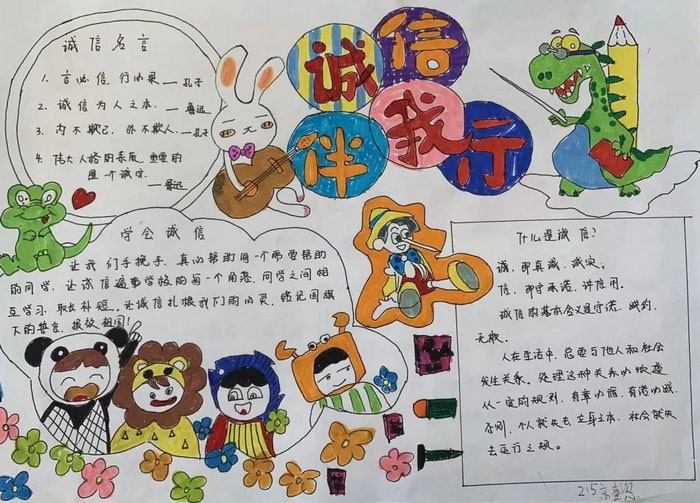 诚信伴我行
诚信名言
1. 言必信,行必果——孔子
2. 诚信为人之本.——鲁迅
3. 内不欺己,外不欺人.——孔子
4. 伟大人格的素质,重要的
是一个诚字.——鲁迅
学会诚信
让我们手挽手,真心帮助每一个需要帮助
的同学,让诚信遍事学校的每一个角落,同学之间相
互学习,取长补短,让诚信扎根我们的心灵,铭记国旗
下的誓言,报效祖国!
什么是诚信?
诚,即真诚、诚实。
信,即守承诺、讲信用。
诚信的基本含义是守诺、践约、
无欺。
人在生活中,总要与他人和社会
发生关系。处理这种关系必须遵
从一定的规则,有章必循,有诺必践,
否则,个人就失去立身之本,社会就失
去运行之规。
2.5